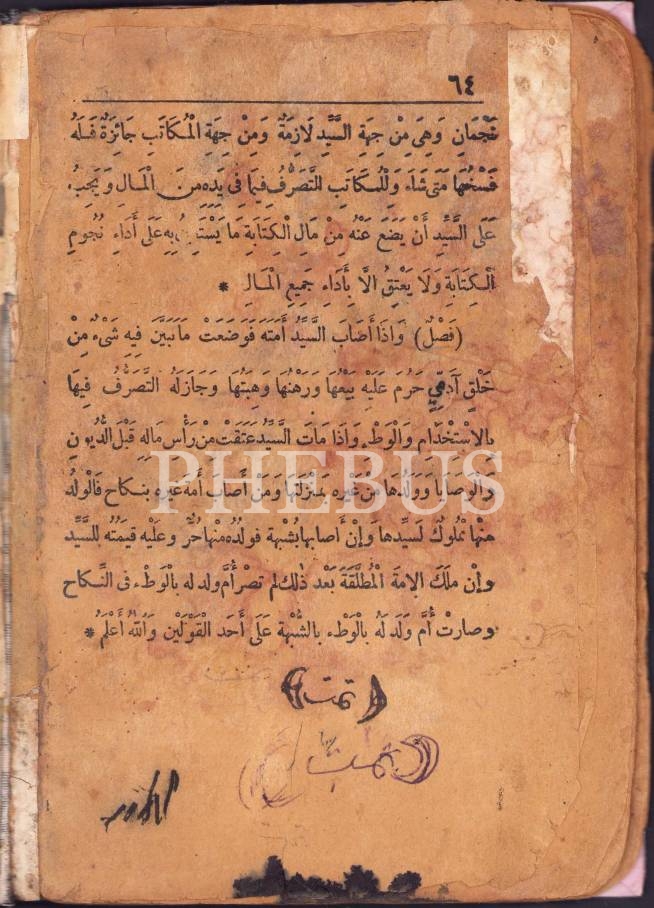 ٦٤
نَجْمَانِ وَهِيَ مِنْ جِهَةِ السَّيِّدِ لَازِمَةٌ وَمِنْ جِهَةِ الْمُكَاتَبِ جَائِزَةٌ فَلَهُ
فَسْخُهَا مَتَى شَاءَ وَلِلْمُكَاتَبِ التَّصَرُّفُ فِيمَا فِي يَدِهِ مِنَ الْمَالِ وَيَجِبُ
عَلَى السَّيِّدِ أَنْ يَضَعَ عَنْهُ مِنْ مَالِ الْكِتَابَةِ مَا يَسْتَعِينُ بِهِ عَلَى أَدَاءِ نُجُومِ
الْكِتَابَةِ وَلَا يَعْتِقُ الَّا بِأَدَاءِ جَمِيعِ الْمَالِ *
(فَصْلٌ) وَاذَا أَصَابَ السَّيِّدُ أَمَتَهُ فَوَضَعَتْ مَا تَبَيَّنَ فِيهِ شَيْءٌ مِنْ
خَلْقِ آدَمِيٍّ حَرُمَ عَلَيْهِ بَيْعُهَا وَرَهْنُهَا وَهِبَتُهَا وَجَازَ لَهُ التَّصَرُّفُ فِيهَا
بِالِاسْتِخْدَامِ وَالْوَطْءِ وَاذَا مَاتَ السَّيِّدُ عَتَقَتْ مِنْ رَأْسِ مَالِهِ قَبْلَ الدُّيُونِ
وَالْوَصَايَا وَوَلَدُهَا مِنْ غَيْرِهِ بِمَنْزِلَتِهَا وَمَنْ أَصَابَ أَمَةَ غَيْرِهِ بِنِكَاحٍ فَالْوَلَدُ
مِنْهَا مَمْلُوكٌ لِسَيِّدِهَا وَإِنْ أَصَابَهَا بِشُبْهَةٍ فَوَلَدُهُ مِنْهَا حُرٌّ وَعَلَيْهِ قِيمَتُهُ لِلسَّيِّدِ
وَإِنْ مَلَكَ الامَةَ الْمُطَلَّقَةَ بَعْدَ ذٰلِكَ لَمْ تَصِرْ أُمَّ وَلَدٍ لَهُ بِالْوَطْءِ فِى النِّكَاحِ
وَصَارَتْ أُمَّ وَلَدٍ لَهُ بِالْوَطْءِ بِالشُّبْهَةِ عَلَى أَحَدِ الْقَوْلَيْنِ وَاللهُ أَعْلَمُ *
(تمت)
(تمت)
PHEBUS